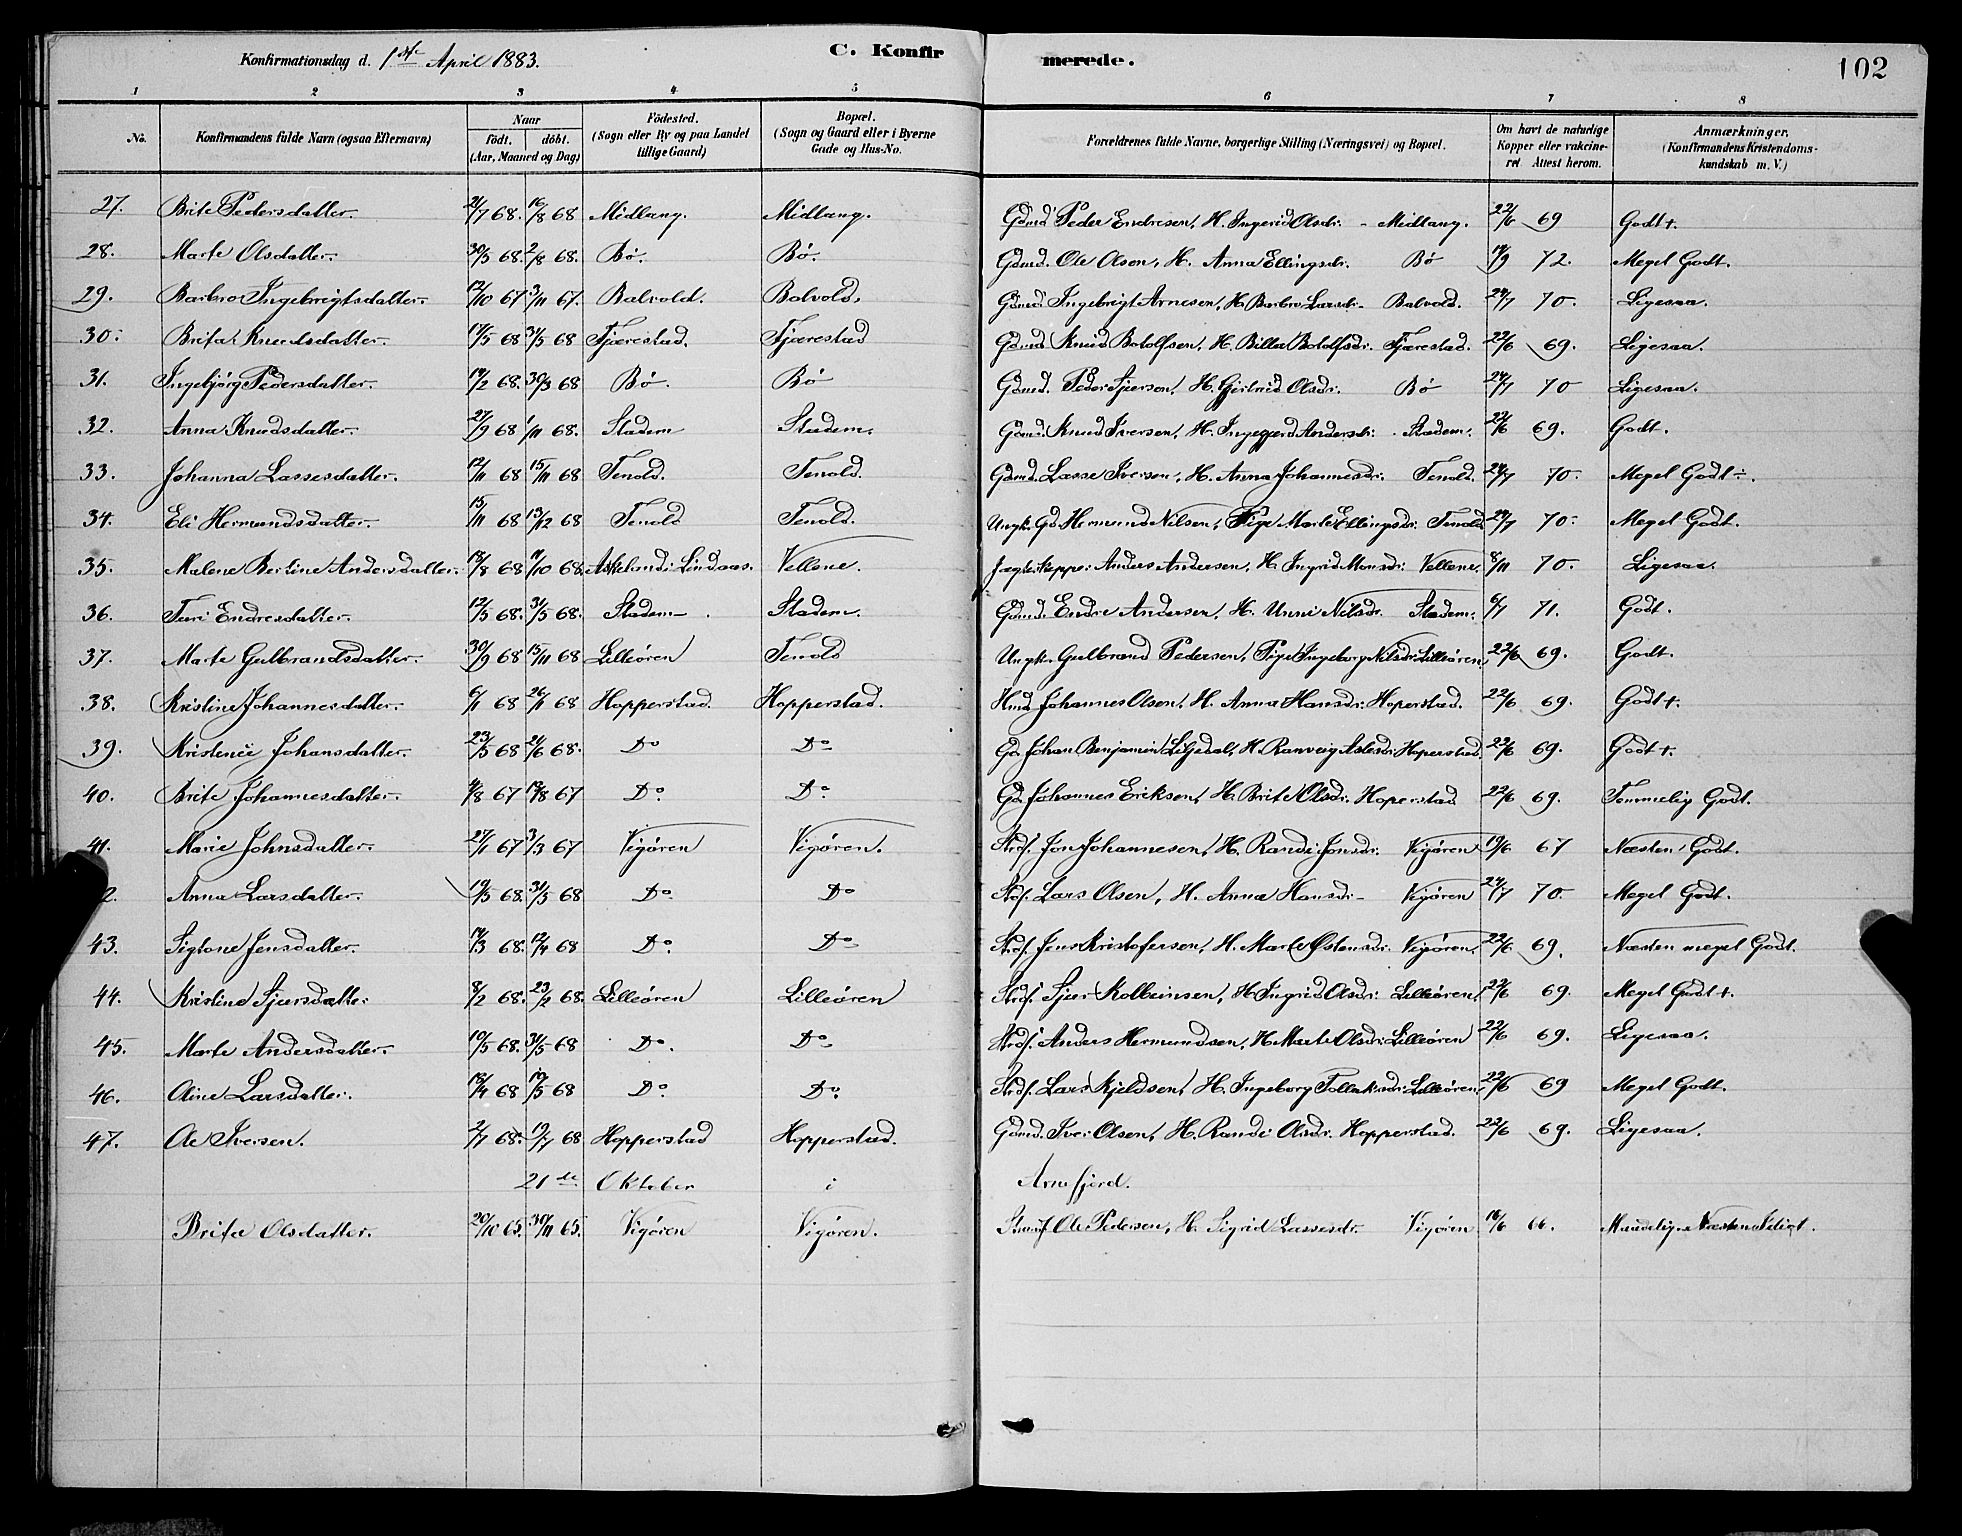 Konfirmationsdag d. 1ste April 1883. C. Konfirmerede. 102
1 2 3 4 5 6 7 8
No. Konfirmandens fulde Navn (ogsaa Efternavn) Naar födt. döbt. (Aar, Maaned og Dag) Födested. (Sogn eller By og paa Landet tillige Gaard) Bopæl. (Sogn og Gaard eller i Byerne Gade og Hus-No. Forældrenes fulde Navne, borgerlige Stilling (Næringsvei) og Bopæl. Om havt de naturlige Kopper eller vakcineret. Attest herom. Anmærkninger. (Konfirmandens Kristendomskundskab m. V.)
27. Brite Pedersdatter. 21/7 68. 16/8 68 Midlang. Midlang. Gdmd. Peder Endresen, H. Ingerid Olsdr. - Midlang. 22/6 69 Godt +.
28. Marte Olsdatter. 30/5 68. 2/8 68. Bø. Bø. Gdmd. Ole Olsen, H. Anna Ellingsdr. Bø 19/9 72. Meget Godt.
29. Barbro Ingebrigtsdatter. 12/10 67 3/11 67. Balvold. Balvold. Gdmd. Ingebrigt Arnesen, H. Barbro Larsdr. Balvold. 24/7 70. Ligesaa.
30. Brita Knudsdatter. 17/5 68 31/5 68 Fjærestad. Fjærestad Gdmd. Knud Botolfsen, H. Britta Botolfsdr. Fjærestad. 22/6 69. Ligesaa.
31. Ingebjörg Pedersdatter. 19/2 68. 30/3 68 Bø. Bø Gdmd. Peder Sjurson, H. Gjertrud Olsdr. Bø 24/7 70 Ligesaa.
32. Anna Knudsdatter. 27/9 68 1/11 68. Stadem Stadem. Gdmd. Knud Iversen, H. Ingegjerd Andersdr. Stadem. 22/6 69. Godt.
33. Johanna Lassesdatter. 12/11 68 15/11 68 Tenold. Tenold. Gdmd. Lasse Iversen, H. Anna Johannesdr. Tenold. 24/7 70. Meget Godt ÷.
34. Eli Hermundsdatter. 15/11 68 13/12 68 Tenold Tenold. Ungk. Gd. Hermund Nilsen, Pige Marte Ellingsdr. Tenold 24/7 70. Meget Godt.
35. Malene Berline Andersdatter. 18/8 68 11/10 68. Askeland: Lindaas. Vellene. Jægtskipper Anders Andersen, H. Ingrid Monsdr. Vellene. 8/11 70. Ligesaa.
36. Turi Endresdatter. 12/5 68. 31/5 68. Stadem Stadem. Gdmd. Endre Andersen, H. Unni Nilsdr. Stadem. 6/7 71. Godt.
37. Marte Gulbrandsdatter. 30/9 68 15/11 68 Lilleören Tenold Ungk. Gulbrand Pedersen, Pige Ingeborg Nilsdr. Lilleören 22/6 69. Godt.
38. Kristine Johannesdatter. 6/1 68 26/1 68 Hopperstad. Hopperstad. Hmd. Johannes Olsen, H. Anna Hansdr. Hoperstad. 22/6 69. Godt +.
39. Kristense Johansdatter. 23/5 68 21/6 68. Do Do Gd. Johan Benjamin Liljedal, H. Ranveig Aslesdr. Hoperstad. 22/6 69. Godt +.
40. Brite Johannesdatter. 4/8 67 18/8 67 Do Do Gd. Johannes Eriksen, H. Brite Olsdr. Hoperstad 22/6 69. Temmelig Godt.
41. Marie Johnsdatter. 27/1 67 3/3 67 Vigören Vigören. Strdf. Jon Johannesen, H. Randi Jonsdr. Vigören 19/6 67 Næsten Godt.
2. Anna Larsdatter. 19/5 68. 31/5 68 Do Do Strdf. Lars Olsen, H. Anna Hansdr. Vigören 24/7 70. Meget Godt.
43. Siglone Jensdatter. 14/3 68. 12/4 68 Do Do Strdf. Jens Kristofersen, H. Marte Østensdr. Vigören. 22/6 69. Næsten meget Godt.
44. Kristine Sjursdatter 8/2 68. 23/2 68. Lilleören Lilleören Strdf. Sjur Kolbeinsen, H. Ingrid Olsdr. Lilleören. 22/6 69. Meget Godt +.
45. Marte Andersdatter. 10/5 68. 31/5 68 Do. Do Strdf. Anders Hermundsen, H. Marte Olsdr. Lilleören 22/6 69. Ligesaa.
46. Oline Larsdatter. 18/4 68 10/5 68 Do Do Strdf. Lars Kjeldsen, H. Ingeborg Tollaksdr. Lilleören. 22/6 69 Meget Godt.
47. Ole Iversen. 2/7 68. 19/7 68 Hopperstad Hopperstad. Gdmd. Iver Olsen, H. Randi Olsdr. Hopperstad. 22/6 69. Ligesaa.
21de Oktober i Arnefjord.
Brita Olsdatter. 20/10 65. 30/11 65. Vigören Vigören. Strandf. Ole Pedersen, H. Sigrid Lassesdr. Vigören 16/6 66. Maadelig. Næsten Idiot.